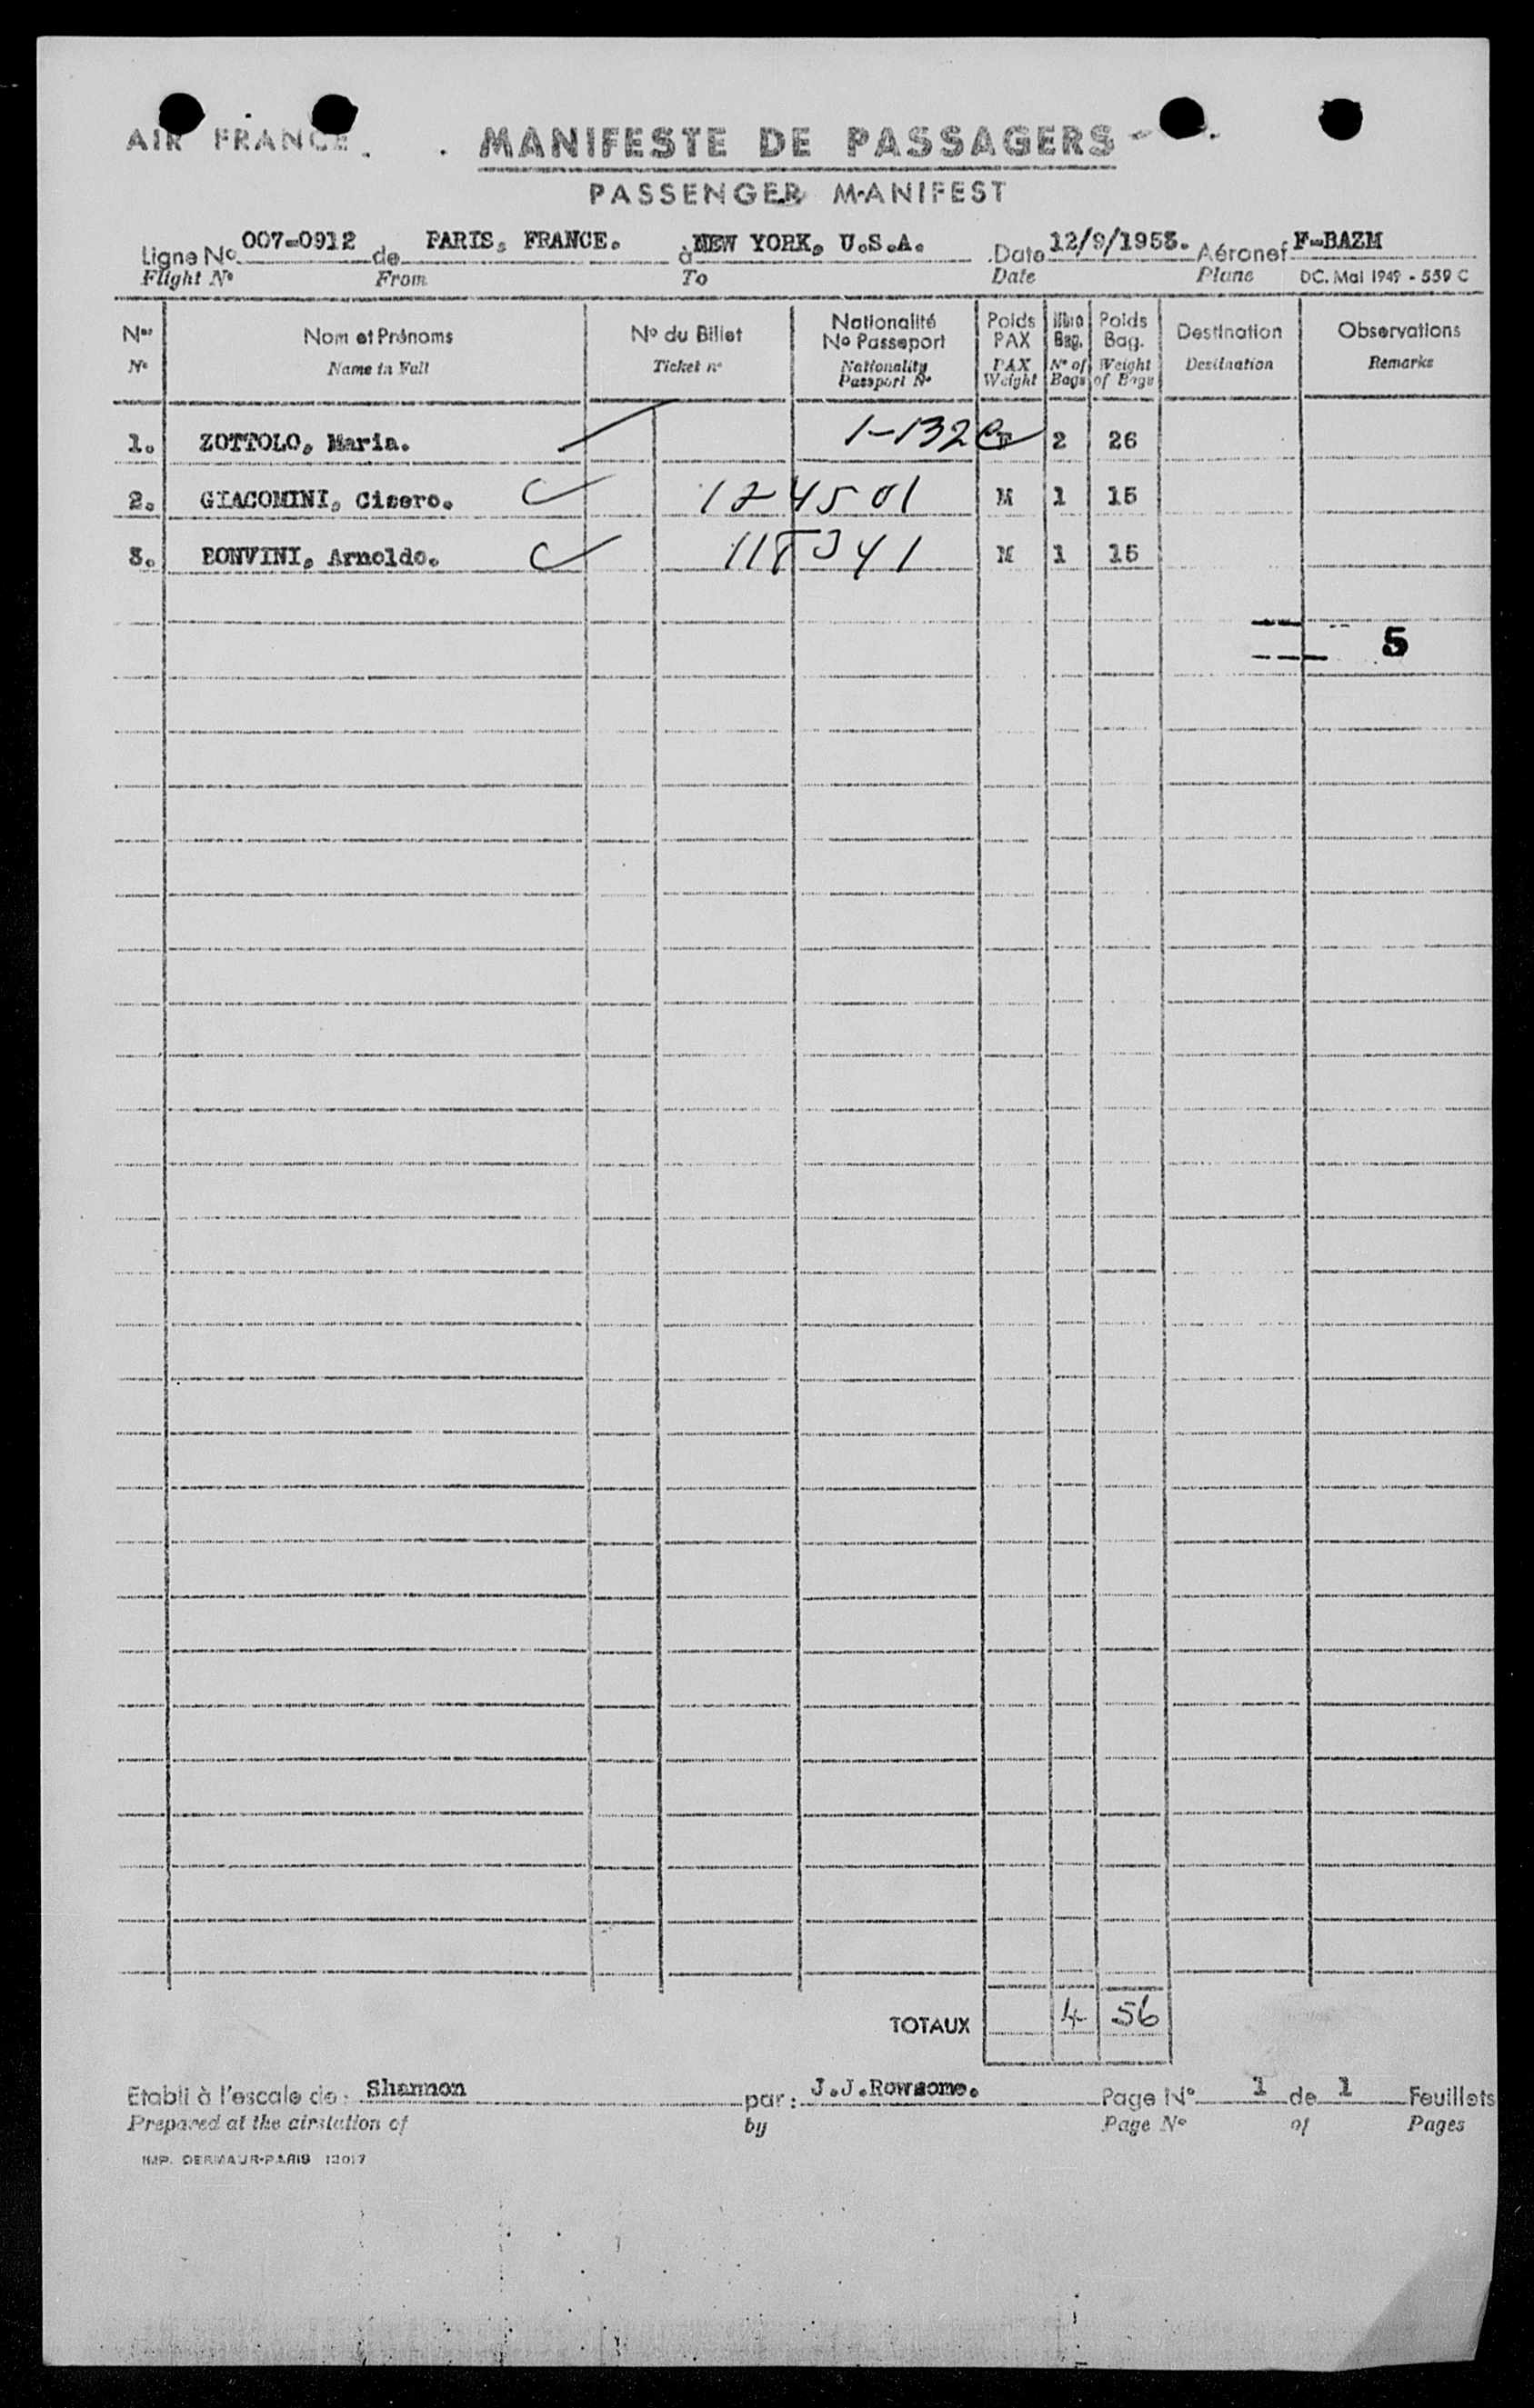 AIR FRANCE
MANIFESTE DE PASSAGERS
PASSENGER MANIFEST
Ligne No 007-0912 de PARIS, FRANCE. à NEW YORK, U.S.A. Date 12/9/1953. Aéronef F-BAZM
Flight No From To Date Plane DC. Mai 1949 - 559 C
Nos Nom et Prénoms No du Billet Nationalité No Passeport Poids PAX Nbre Bag. Poids Bag. Destination Observations
No Name in Full Ticket no Nationality Passport No PAX Weight No of Bags Weight of Bags Destination Remarks
1. ZOTTOLO, Maria. 1-132 2 26
2. GIACOMINI, Cisero. 124501 M 1 15
3. BONVINI, Arnoldo. M 1 15
5
TOTAUX 4 56
Etabli à l'escale de: Shannon par: J.J.Rowsome. Page No 1 de 1 Feuillets
Prepared at the airstation of by Page No of Pages
IMP. DERMAUR-PARIS 12017